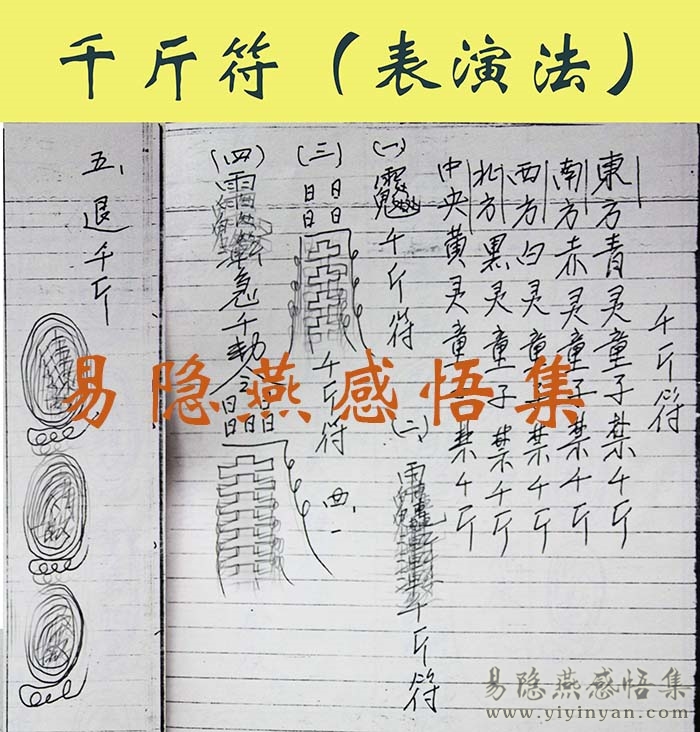 千斤符（表演法）
千斤符
東方青灵童子禁千斤
南方赤灵童子禁千斤
西方白灵童子禁千斤
北方黑灵童子禁千斤
中央黄灵童子禁千斤
(一)
千斤符
(二)
千斤符
(三)
日日
日日
千斤符
四、一
(四)
急千勅令
日日日
日日日
五、退千斤
易隐燕感悟集
易隐燕感悟集
www.yiyinyan.com